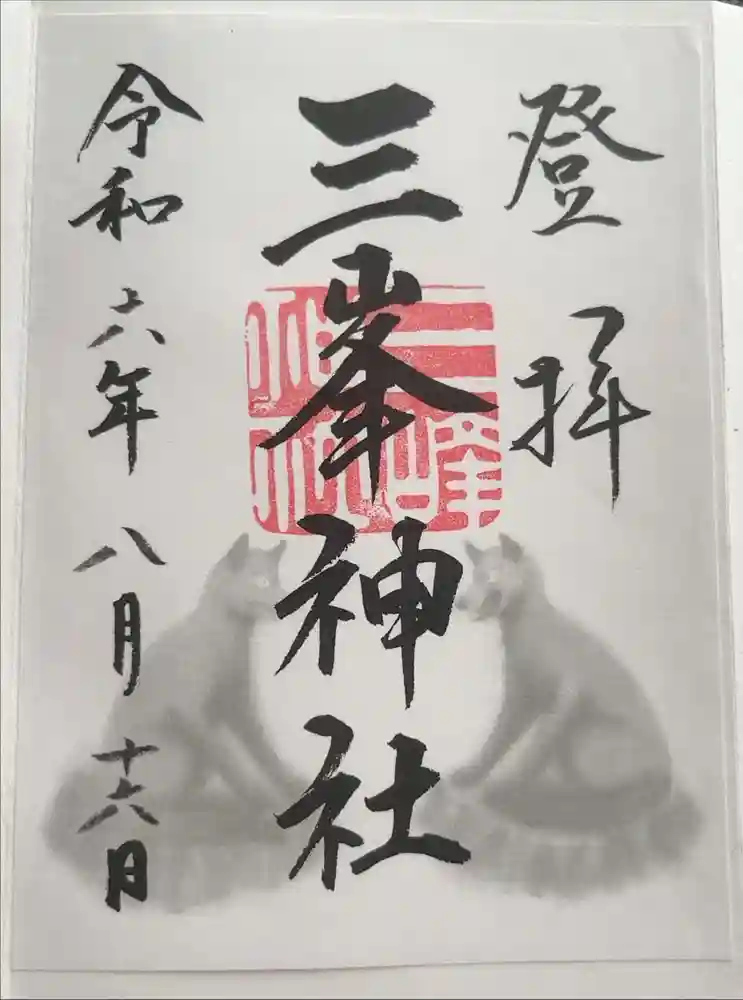 登拝
三峯神社
三峰神社
令和六年八月十六日